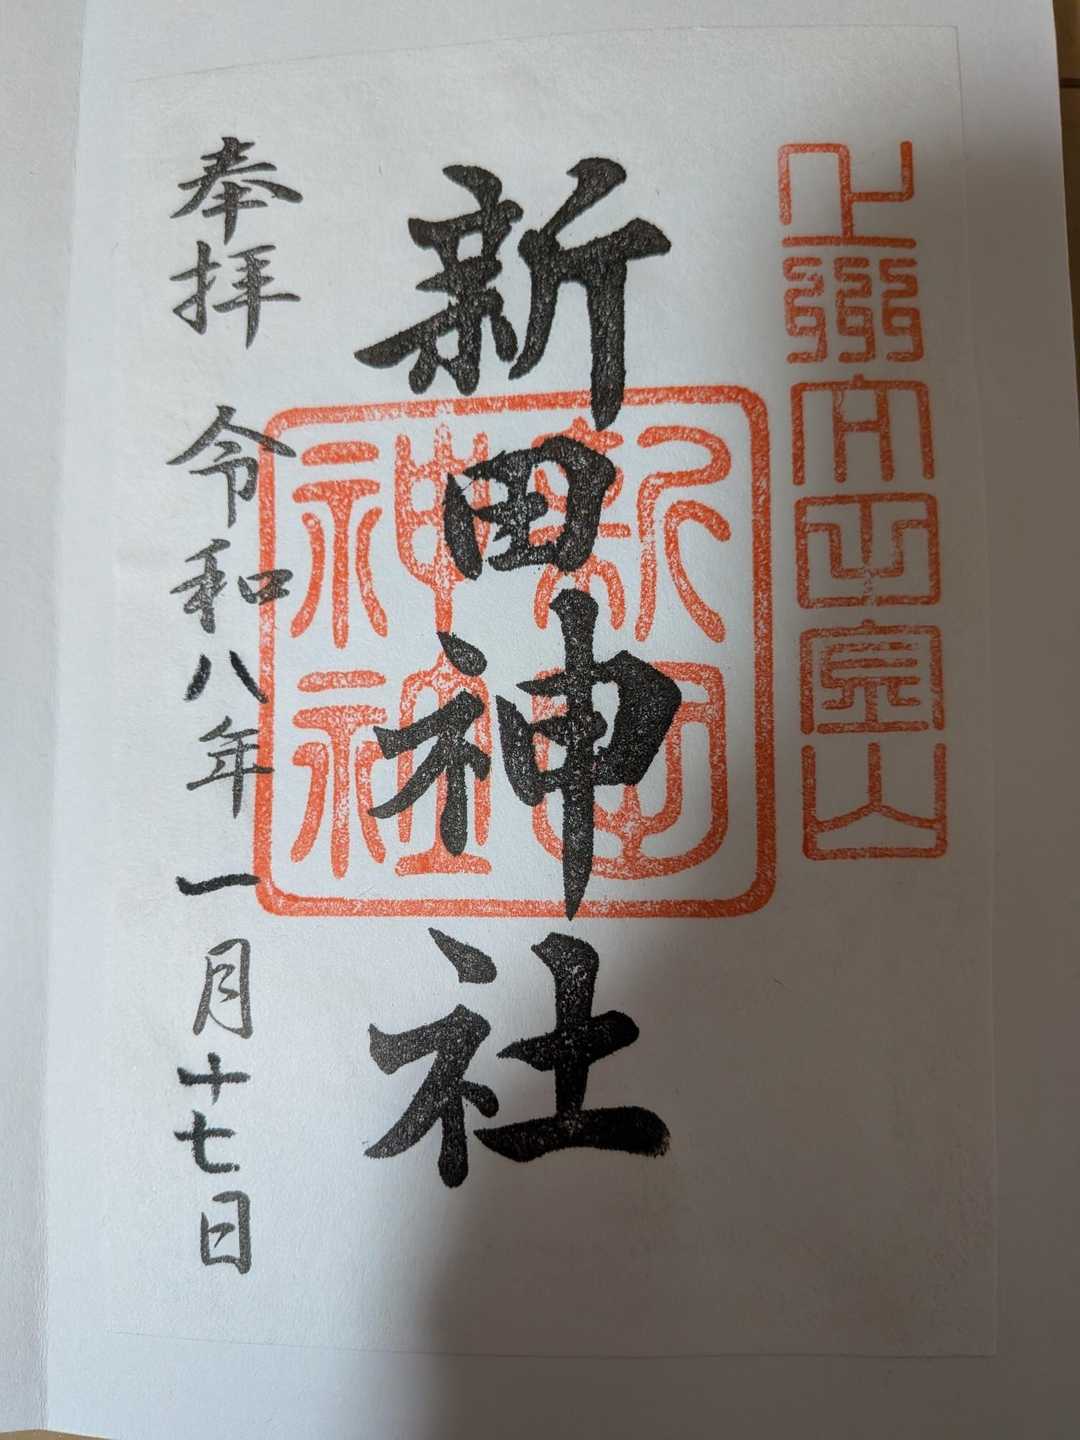 上州太田金山
新田神社
新田
神社
奉拝 令和八年一月十七日